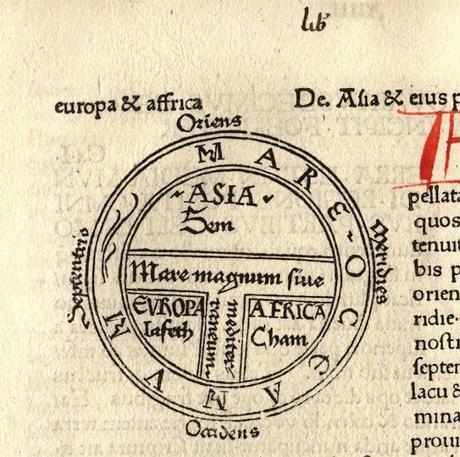 lib
europa & affrica
De. Asia & eius p
Oriens
MARE OCEANVM
ASIA
Sem
Septentrio
Meridies
Mare magnum siue
mediter
raneum
EVROPA
Iafeth
AFRICA
Cham
Occidens
pellata
quos
tenuit
bis p
orien
ridie·
nostr
septen
lacu &
mina
proui